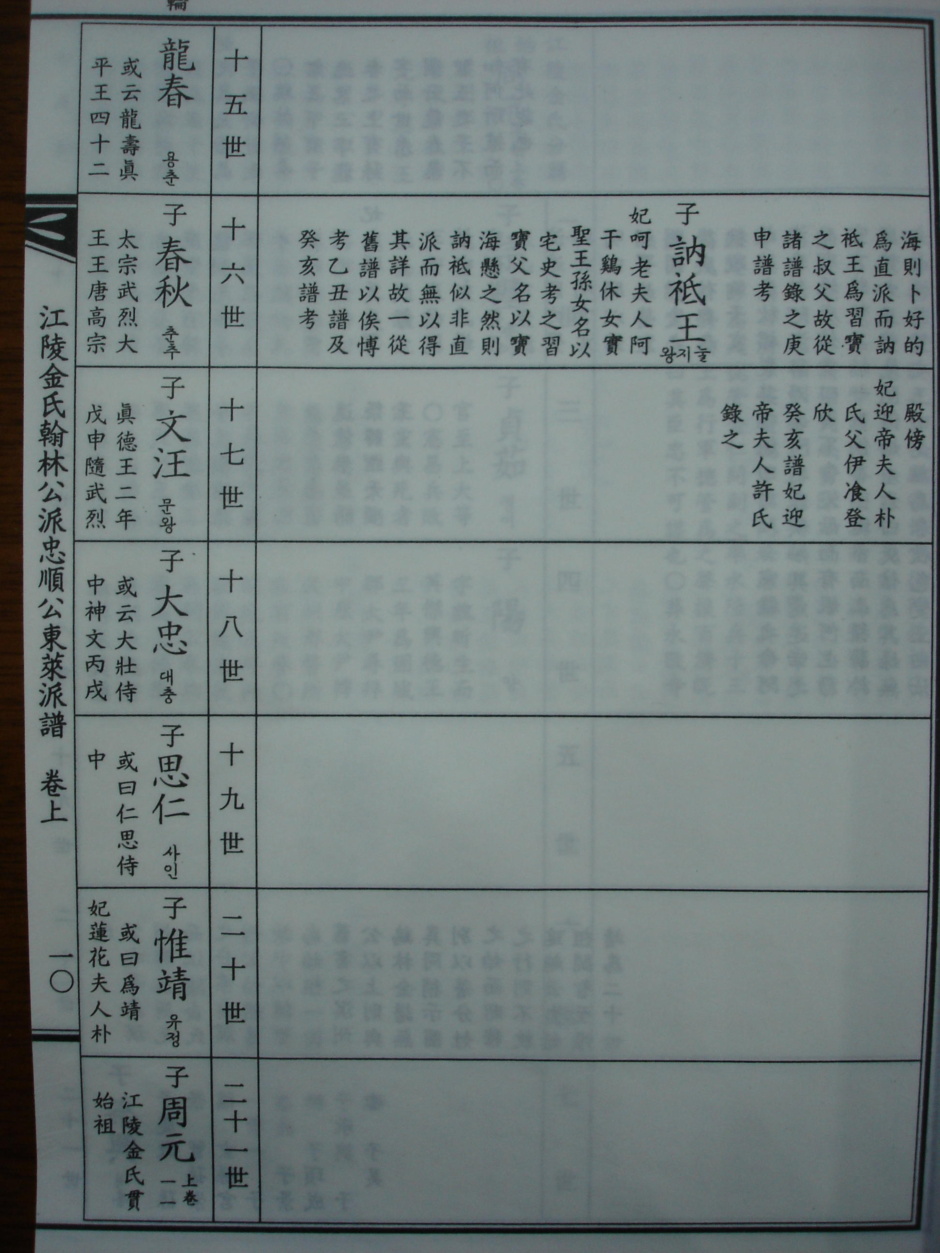 海則卜好的
爲直派而訥
祗王爲習寶
之叔父故從
諸譜錄之庚
申譜考
子訥祗王
눌지왕
妃呵老夫人阿
干鷄休女實
聖王孫女名以
宅史考之習
寶父名以寶
海懸之然則
訥祗似非直
派而無以得
其詳故一從
舊譜以俟博
考乙丑譜及
癸亥譜考
殿傍
妃迎帝夫人朴
氏父伊飡登
欣
癸亥譜妃迎
帝夫人許氏
錄之
十五世
龍春
용춘
或云龍壽眞
平王四十二
十六世
子春秋
춘추
太宗武烈大
王王唐高宗
十七世
子文汪
문왕
眞德王二年
戊申隨武烈
十八世
子大忠
대충
或云大壯侍
中神文丙戌
十九世
子思仁
사인
或曰仁思侍
中
二十世
子惟靖
유정
或曰爲靖
妃蓮花夫人朴
二十一世
子周元
上卷
一一
江陵金氏貫
始祖
江陵金氏翰林公派忠順公東萊派譜 卷上
一〇